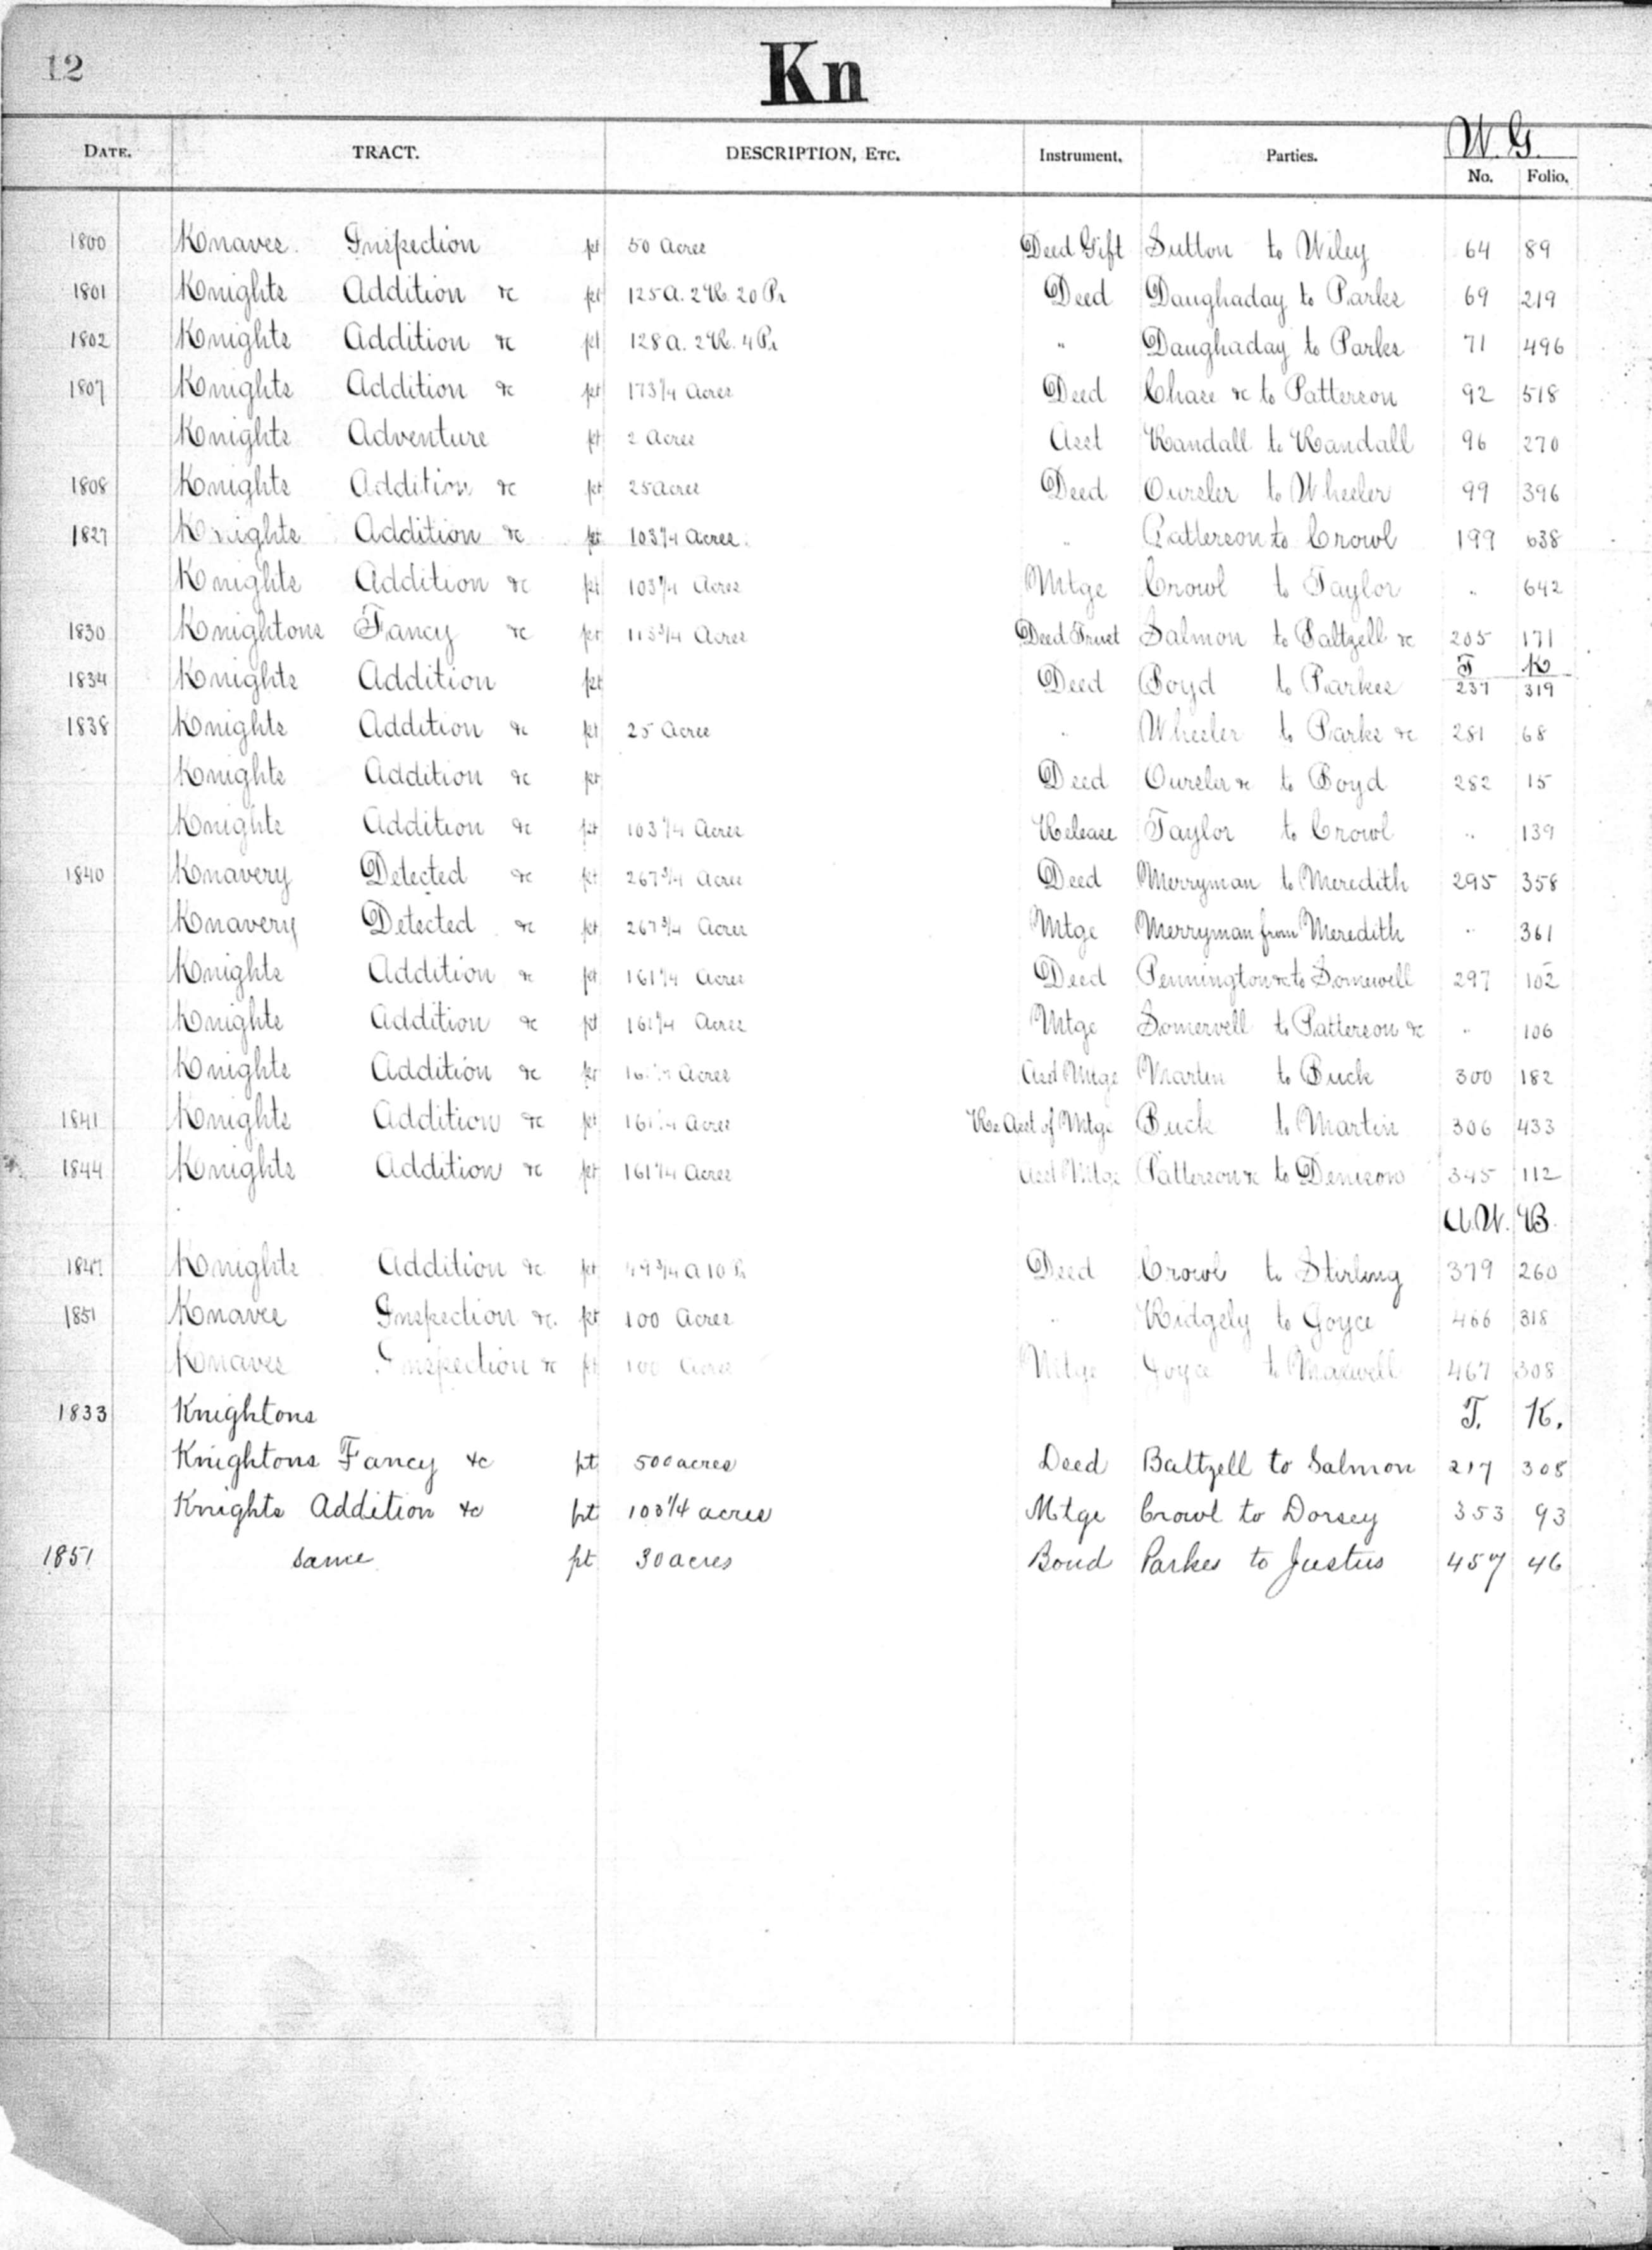 12
Kn
W. G.
DATE. TRACT. DESCRIPTION, ETC. Instrument. Parties. No. Folio.
1800 Knaves Inspection pt 50 Acres Deed Gift Sutton to Wiley 64 89
1801 Knights Addition &c pt 125 A. 2 R. 20 Ps Deed Daughaday to Parks 69 219
1802 Knights Addition &c pt 128 A. 2 R. 4 Ps " Daughaday to Parks 71 496
1807 Knights Addition &c pt 173 1/4 Acres Deed Chase &c to Patterson 92 518
Knights Adventure pt 2 Acres Asst Randall to Randall 96 270
1808 Knights Addition &c pt 25 acres Deed Oursler to Wheeler 99 396
1827 Knights Addition &c pt 103 1/4 Acres " Patterson to Crowl 199 638
Knights Addition &c pt 103 1/4 Acres Mtge Crowl to Taylor " 642
1830 Knightons Fancy &c pt 113 3/4 Acres Deed Trust Salmon to Baltzell &c 205 171
T K
1834 Knights Addition pt Deed Boyd to Parkes 237 319
1838 Knights Addition &c pt 25 Acres " Wheeler to Parks &c 281 68
Knights Addition &c pt Deed Oursler &c to Boyd 282 15
Knights Addition &c pt 103 1/4 Acres Release Taylor to Crowl " 139
1840 Knavery Detected &c pt 267 3/4 Acres Deed Merryman to Meredith 295 358
Knavery Detected &c pt 267 3/4 Acres Mtge Merryman from Meredith " 361
Knights Addition &c pt 161 1/4 Acres Deed Pennington &c to Somervell 297 102
Knights Addition &c pt 161 1/4 Acres Mtge Somervell to Patterson &c " 106
Knights Addition &c pt Acres Asst Mtge Martin to Buck 300 182
1841 Knights Addition &c pt Acres Re Asst of Mtge Buck to Martin 306 433
1844 Knights Addition &c pt 161 1/4 Acres Asst Mtge Patterson &c to Denison 345 112
A.W. B.
1847 Knights Addition &c pt 49 3/4 A 10 Ps Deed Crowl to Stirling 379 260
1851 Knaves Inspection &c. pt 100 Acres " Ridgely to Joyce 466 318
Knaves Inspection &c pt 100 Acres Mtge Joyce to Maxwell 467 308
1833 Knightons T. K.
Knightons Fancy &c pt 500 acres Deed Baltzell to Salmon 217 308
Knights Addition &c pt 103 1/4 acres Mtge Crowl to Dorsey 353 93
1851 same pt 30 acres Bond Parkes to Justus 457 46